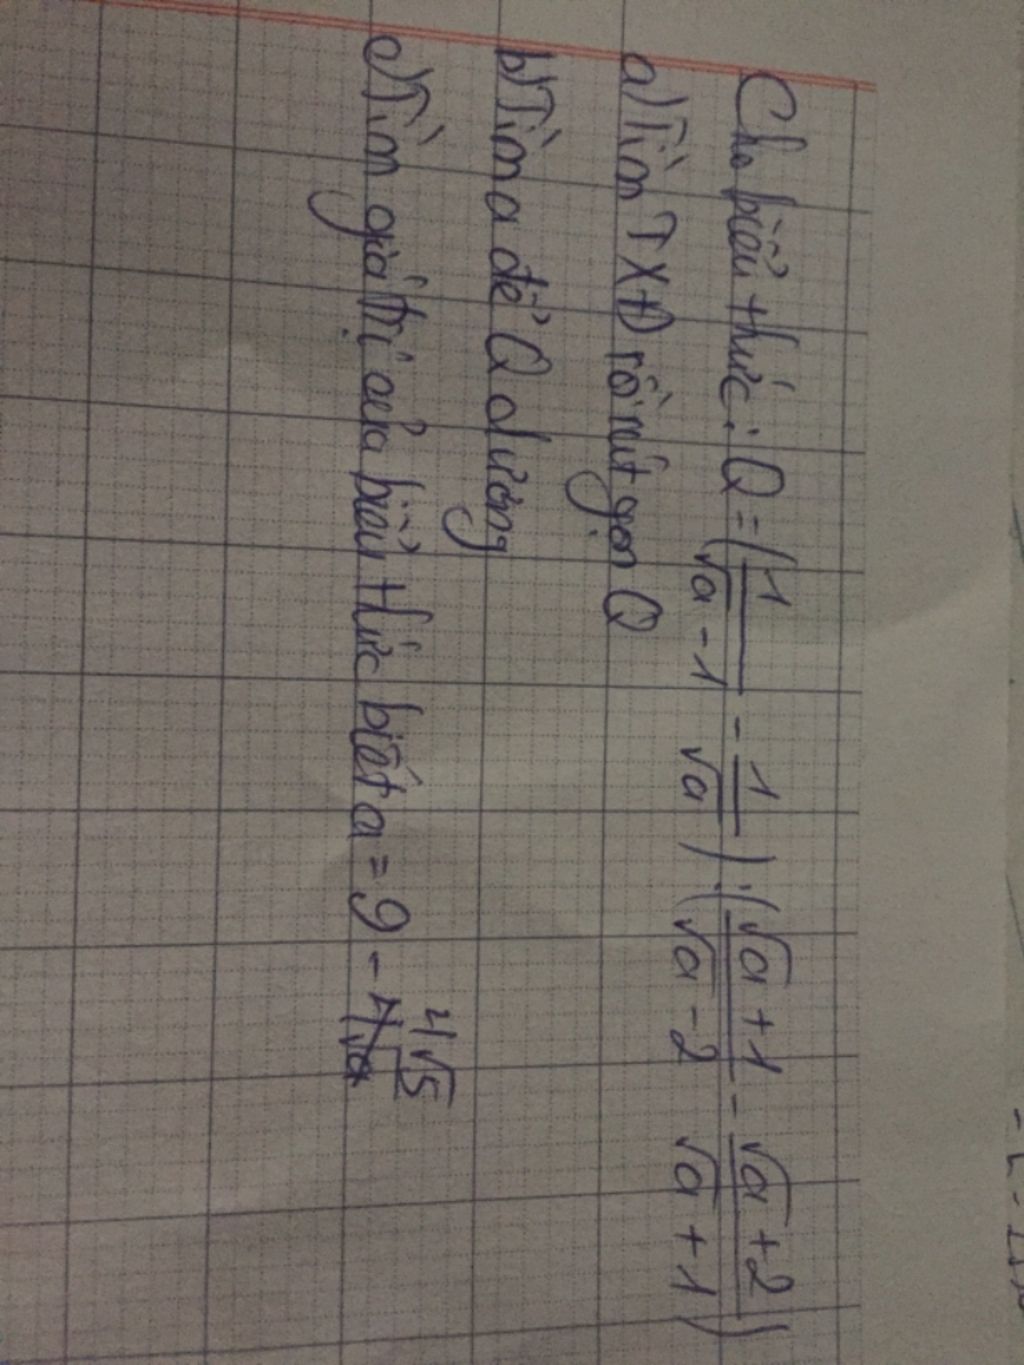 Cho biểu thức: Q = (1/(√a - 1) - 1/√a) : ((√a + 1)/(√a - 2) - (√a + 2)/(√a + 1))
a) Tìm TXĐ rồi rút gọn Q
b) Tìm a để Q dương
c) Tìm giá trị của biểu thức biết a = 9 - 4√5